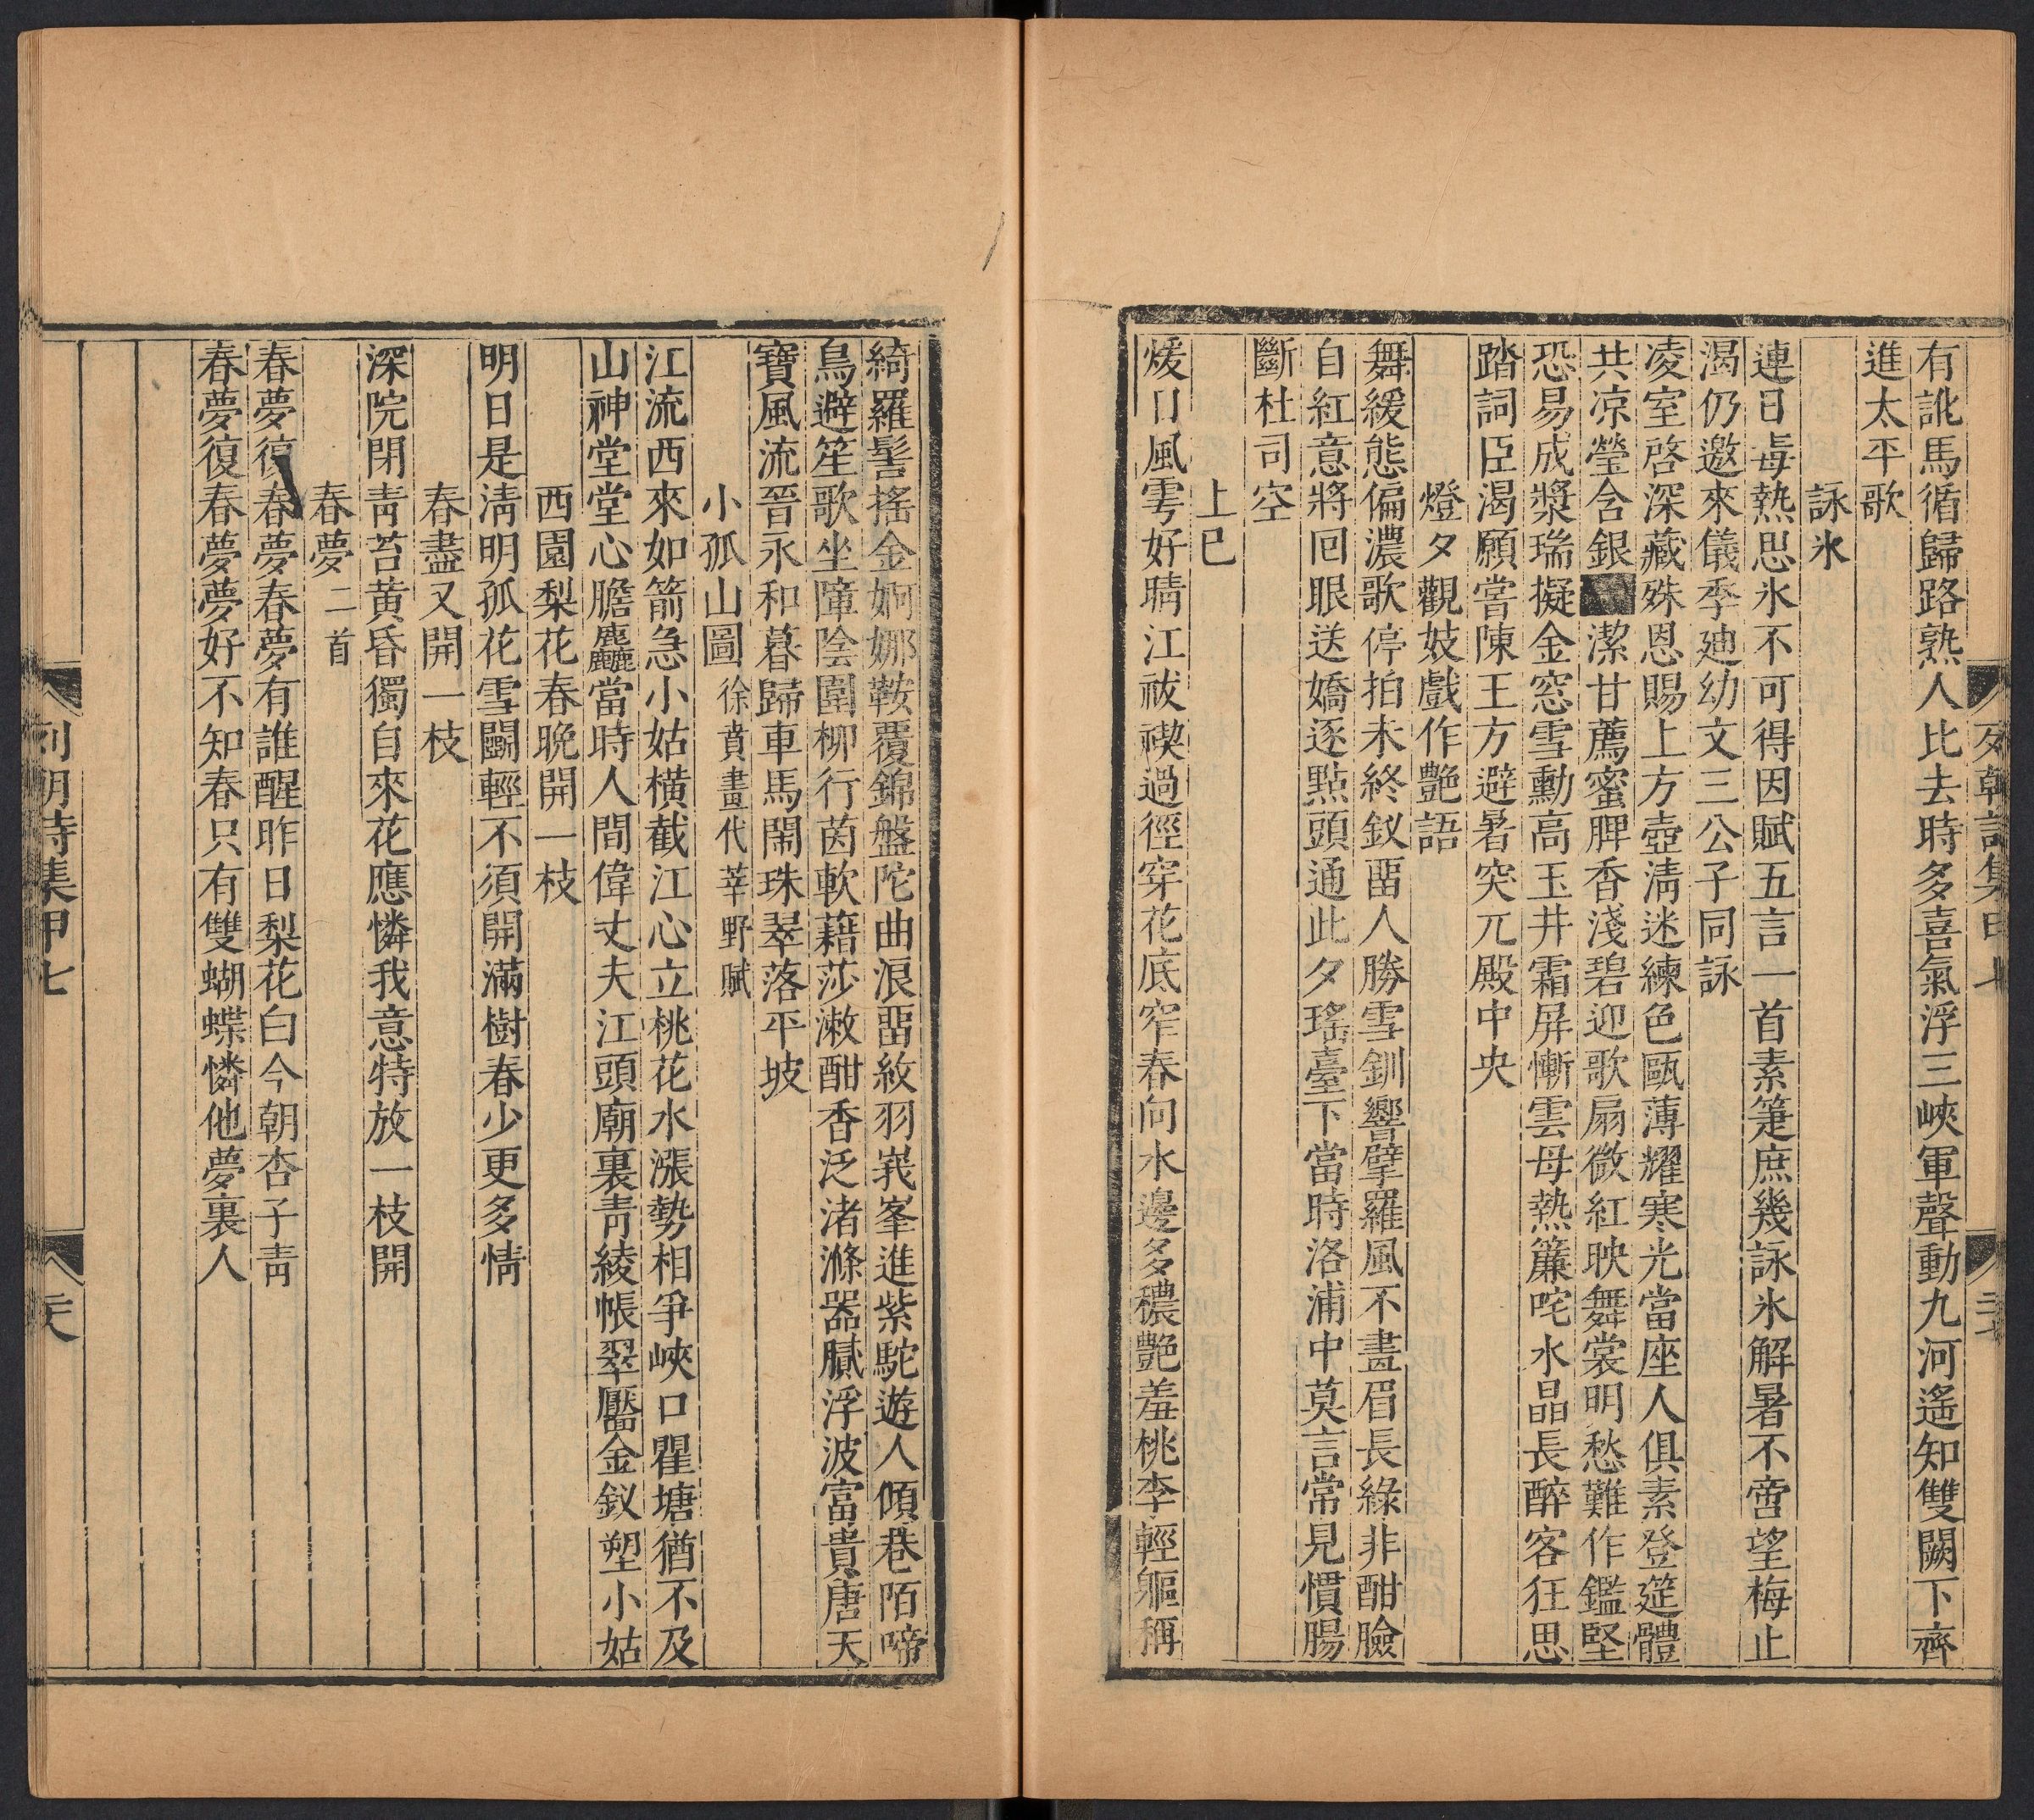 有訛馬循歸路熟人比去時多喜氣浮三峽軍聲動九河遙知雙闕下齊
進太平歌
詠氷
連日毒熱思氷不可得因賦五言一首素箑庶幾詠氷解暑不啻望梅止
渴仍邀來儀季迪幼文三公子同詠
凌室啓深藏殊恩賜上方壺清迷練色甌薄耀寒光當座人俱素登筵體
共凉瑩含銀■潔甘薦蜜脾香淺碧迎歌扇微紅映舞裳明愁難作鑑堅
恐易成漿瑞擬金窓雪勳高玉井霜屏慚雲母熱簾咤水晶長醉客狂思
踏詞臣渴願嘗陳王方避暑突兀殿中央
燈夕觀妓戲作艷語
舞緩態偏濃歌停拍未終釵畱人勝雪釧響擘羅風不畫眉長綠非酣臉
自紅意將囘眼送嬌逐點頭通此夕瑤臺下當時洛浦中莫言常見慣腸
斷杜司空
上巳
煖日風雩好睛江祓禊過徑穿花底窄春向水邊多穠艷羞桃李輕軀稱
綺羅髻搖金婀娜鞍覆錦盤陀曲浪畱紋羽峩峯進紫駝遊人傾巷陌啼
鳥避笙歌坐障陰圍柳行茵軟藉莎漱酣香泛渚滌器膩浮波富貴唐天
寶風流晉永和暮歸車馬鬧珠翠落平坡
小孤山圖 徐賁畫代莘野賦
江流西來如箭急小姑橫截江心立桃花水漲勢相爭峽口瞿塘猶不及
山神堂堂心膽麤當時人間偉丈夫江頭廟裏靑綾帳翠靨金釵塑小姑
西園梨花春晚開一枝
明日是淸明孤花雪鬭輕不須開滿樹春少更多情
春盡又開一枝
深院閉靑苔黃昏獨自來花應憐我意特放一枝開
春夢 二首
春夢復春夢春夢有誰醒昨日梨花白今朝杏子靑
春夢復春夢夢好不知春只有雙蝴蝶憐他夢裏人
列朝詩集甲七